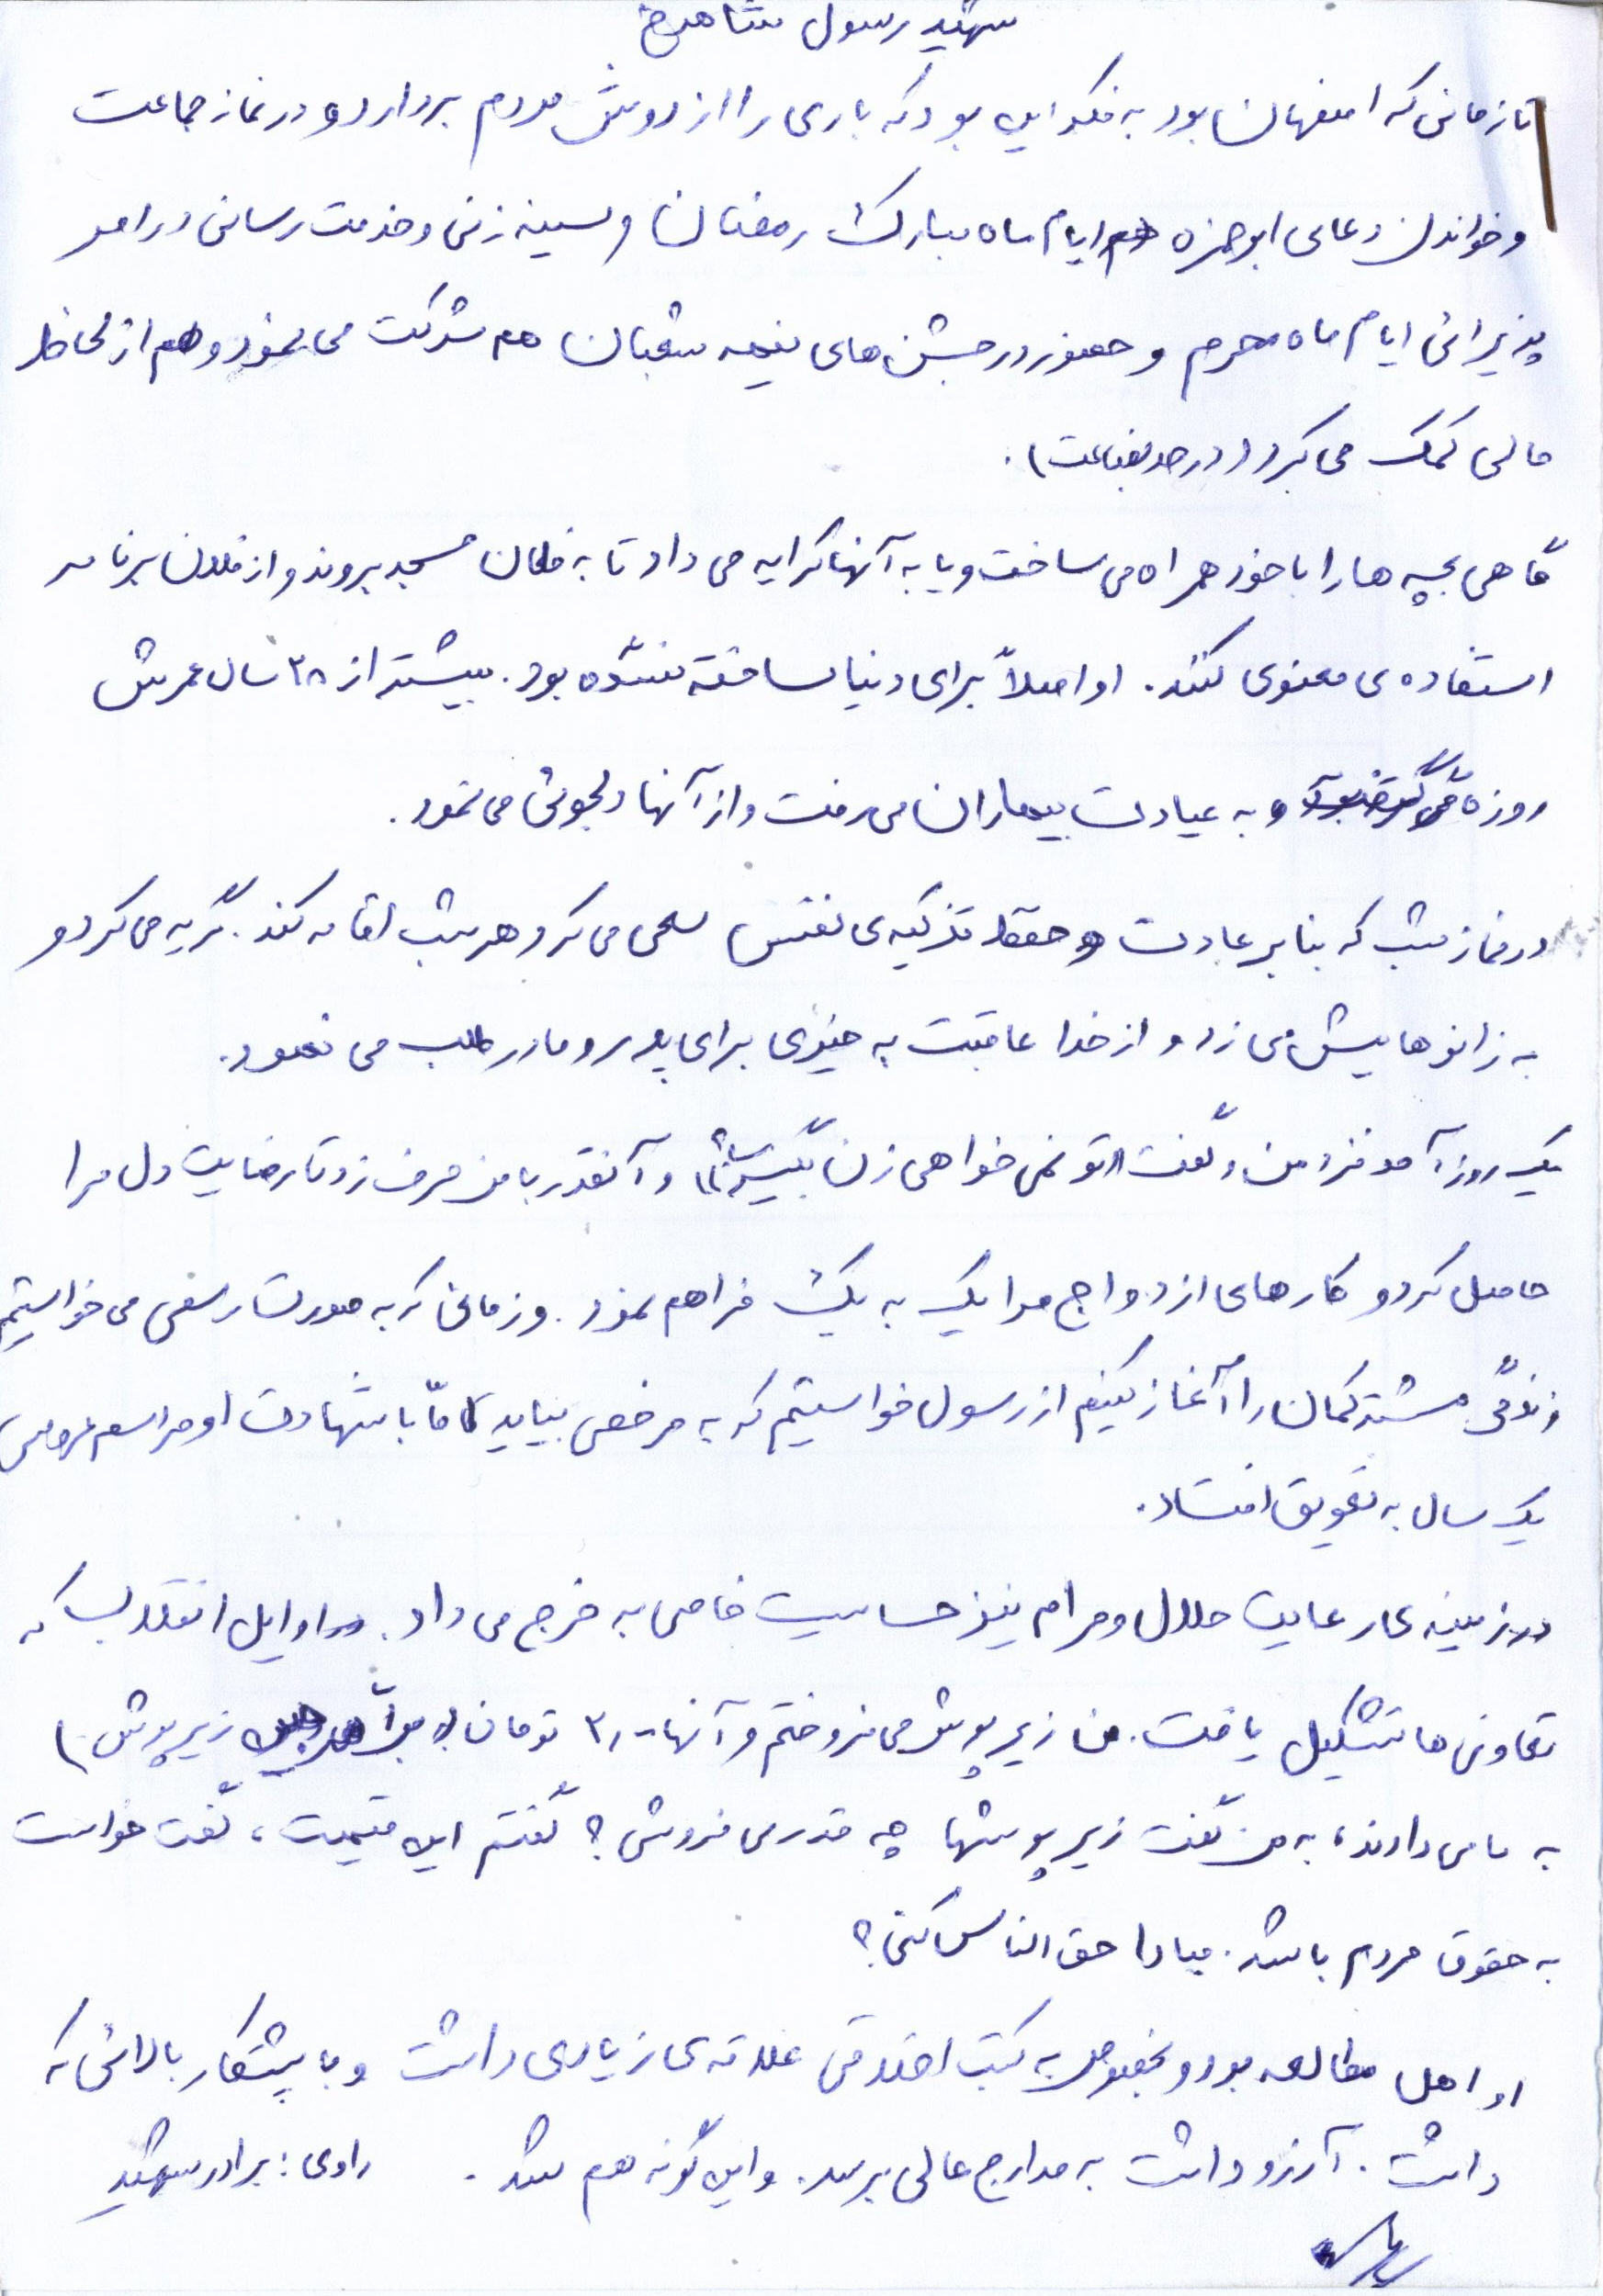 شهید رسول شاهرخ
تا زمانی که اصفهان بود به فکر این بود که باری را از دوش مردم بردارد و در نماز جماعت
و خواندن دعای ابوحمزه ایام ماه مبارک رمضان و سینه زنی و خدمت رسانی در امر
پذیرائی ایام ماه محرم و حضور در جشن های نیمه شعبان هم شرکت می نمود و هم از لحاظ
مالی کمک می کرد (در حد بضاعت).
گاهی بچه ها را با خود همراه می ساخت و یا به آنها کرایه می داد تا به فلان مسجد بروند و از فلان برنامه
استفاده ی معنوی کنند. او اصلاً برای دنیا ساخته نشده بود. بیشتر از ۳۸ سال عمرش
روزه و به عیادت بیماران می رفت و از آنها دلجوئی می نمود.
در نماز شب که بنا بر عادت و تزکیه ی نفس سعی می کرد هر شب اقامه کند. گریه می کرد و
به زانوهایش می زد و از خدا عاقبت به خیری برای پدر و مادر طلب می نمود.
یک روز آمد نزد من و گفت «تو نمی خواهی زن بگیری؟» و آنقدر با من حرف زد تا رضایت دل مرا
حاصل کرد و کارهای ازدواج مرا یک به یک فراهم نمود. و زمانی که به صورت رسمی می خواستیم
زندگی مشترکمان را آغاز کنیم از رسول خواستیم که به مرخصی بیاید اما با شهادت او مراسم عروسی
یک سال به تعویق افتاد.
در زمینه ی رعایت حلال و حرام نیز حساسیت خاصی به خرج می داد. در اوایل انقلاب که
تعاونی ها تشکیل یافت. من زیر پوش می فروختم و آنها تومان زیر پوش)
به ما می دادند، به من گفت زیر پوشها چه قدر می فروشی؟ گفتم این قیمت، گفت حواست
به حقوق مردم باشد. مبادا حق الناس کنی؟
او اهل مطالعه بود و بخصوص به کتب اخلاقی علاقه ی زیادی داشت و با پشتکار بالائی که
داشت. آرزو داشت به مدارج عالی برسد. و این گونه هم شد. راوی: برادر شهید